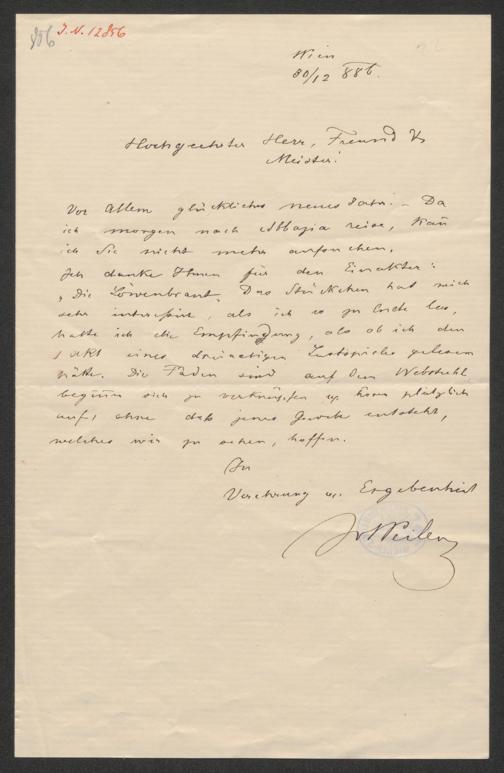 856 J.N. 12856
Wien
30/12 886.
Hochgeehrter Herr, Freund &
Meister!
Vor Allem glückliches neues Jahr! – Da
ich morgen nach Abbazia reise, kan̄
ich Sie nicht mehr aufsuchen.
Ich danke Ihnen für den Einakter:
„Die Löwenbraut. Das Stückchen hat mich
sehr interessirt, als ich es zu Ende las,
hatte ich die Empfindung, als ob ich den
1 Akt eines dreiactigen Lustspieles gelesen
hätte. Die Fäden sind auf dem Webstuhl,
begin̄en sich zu verknüpfen u. hören plötzlich
auf, ohne daß jenes Gewebe entsteht,
welches wir zu sehen, hoffen.
In
Verehrung u. Ergebenheit
JvWeilen